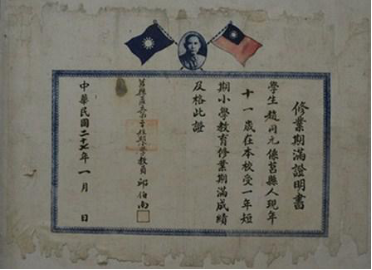 修業期滿證明書
學生趙同元係莒縣人現年
十一歲在本校受一年短
期小學教育修業期滿成績
及格此證
莒縣 短期小學教員 邱伯南
中華民國二十七年一月 日